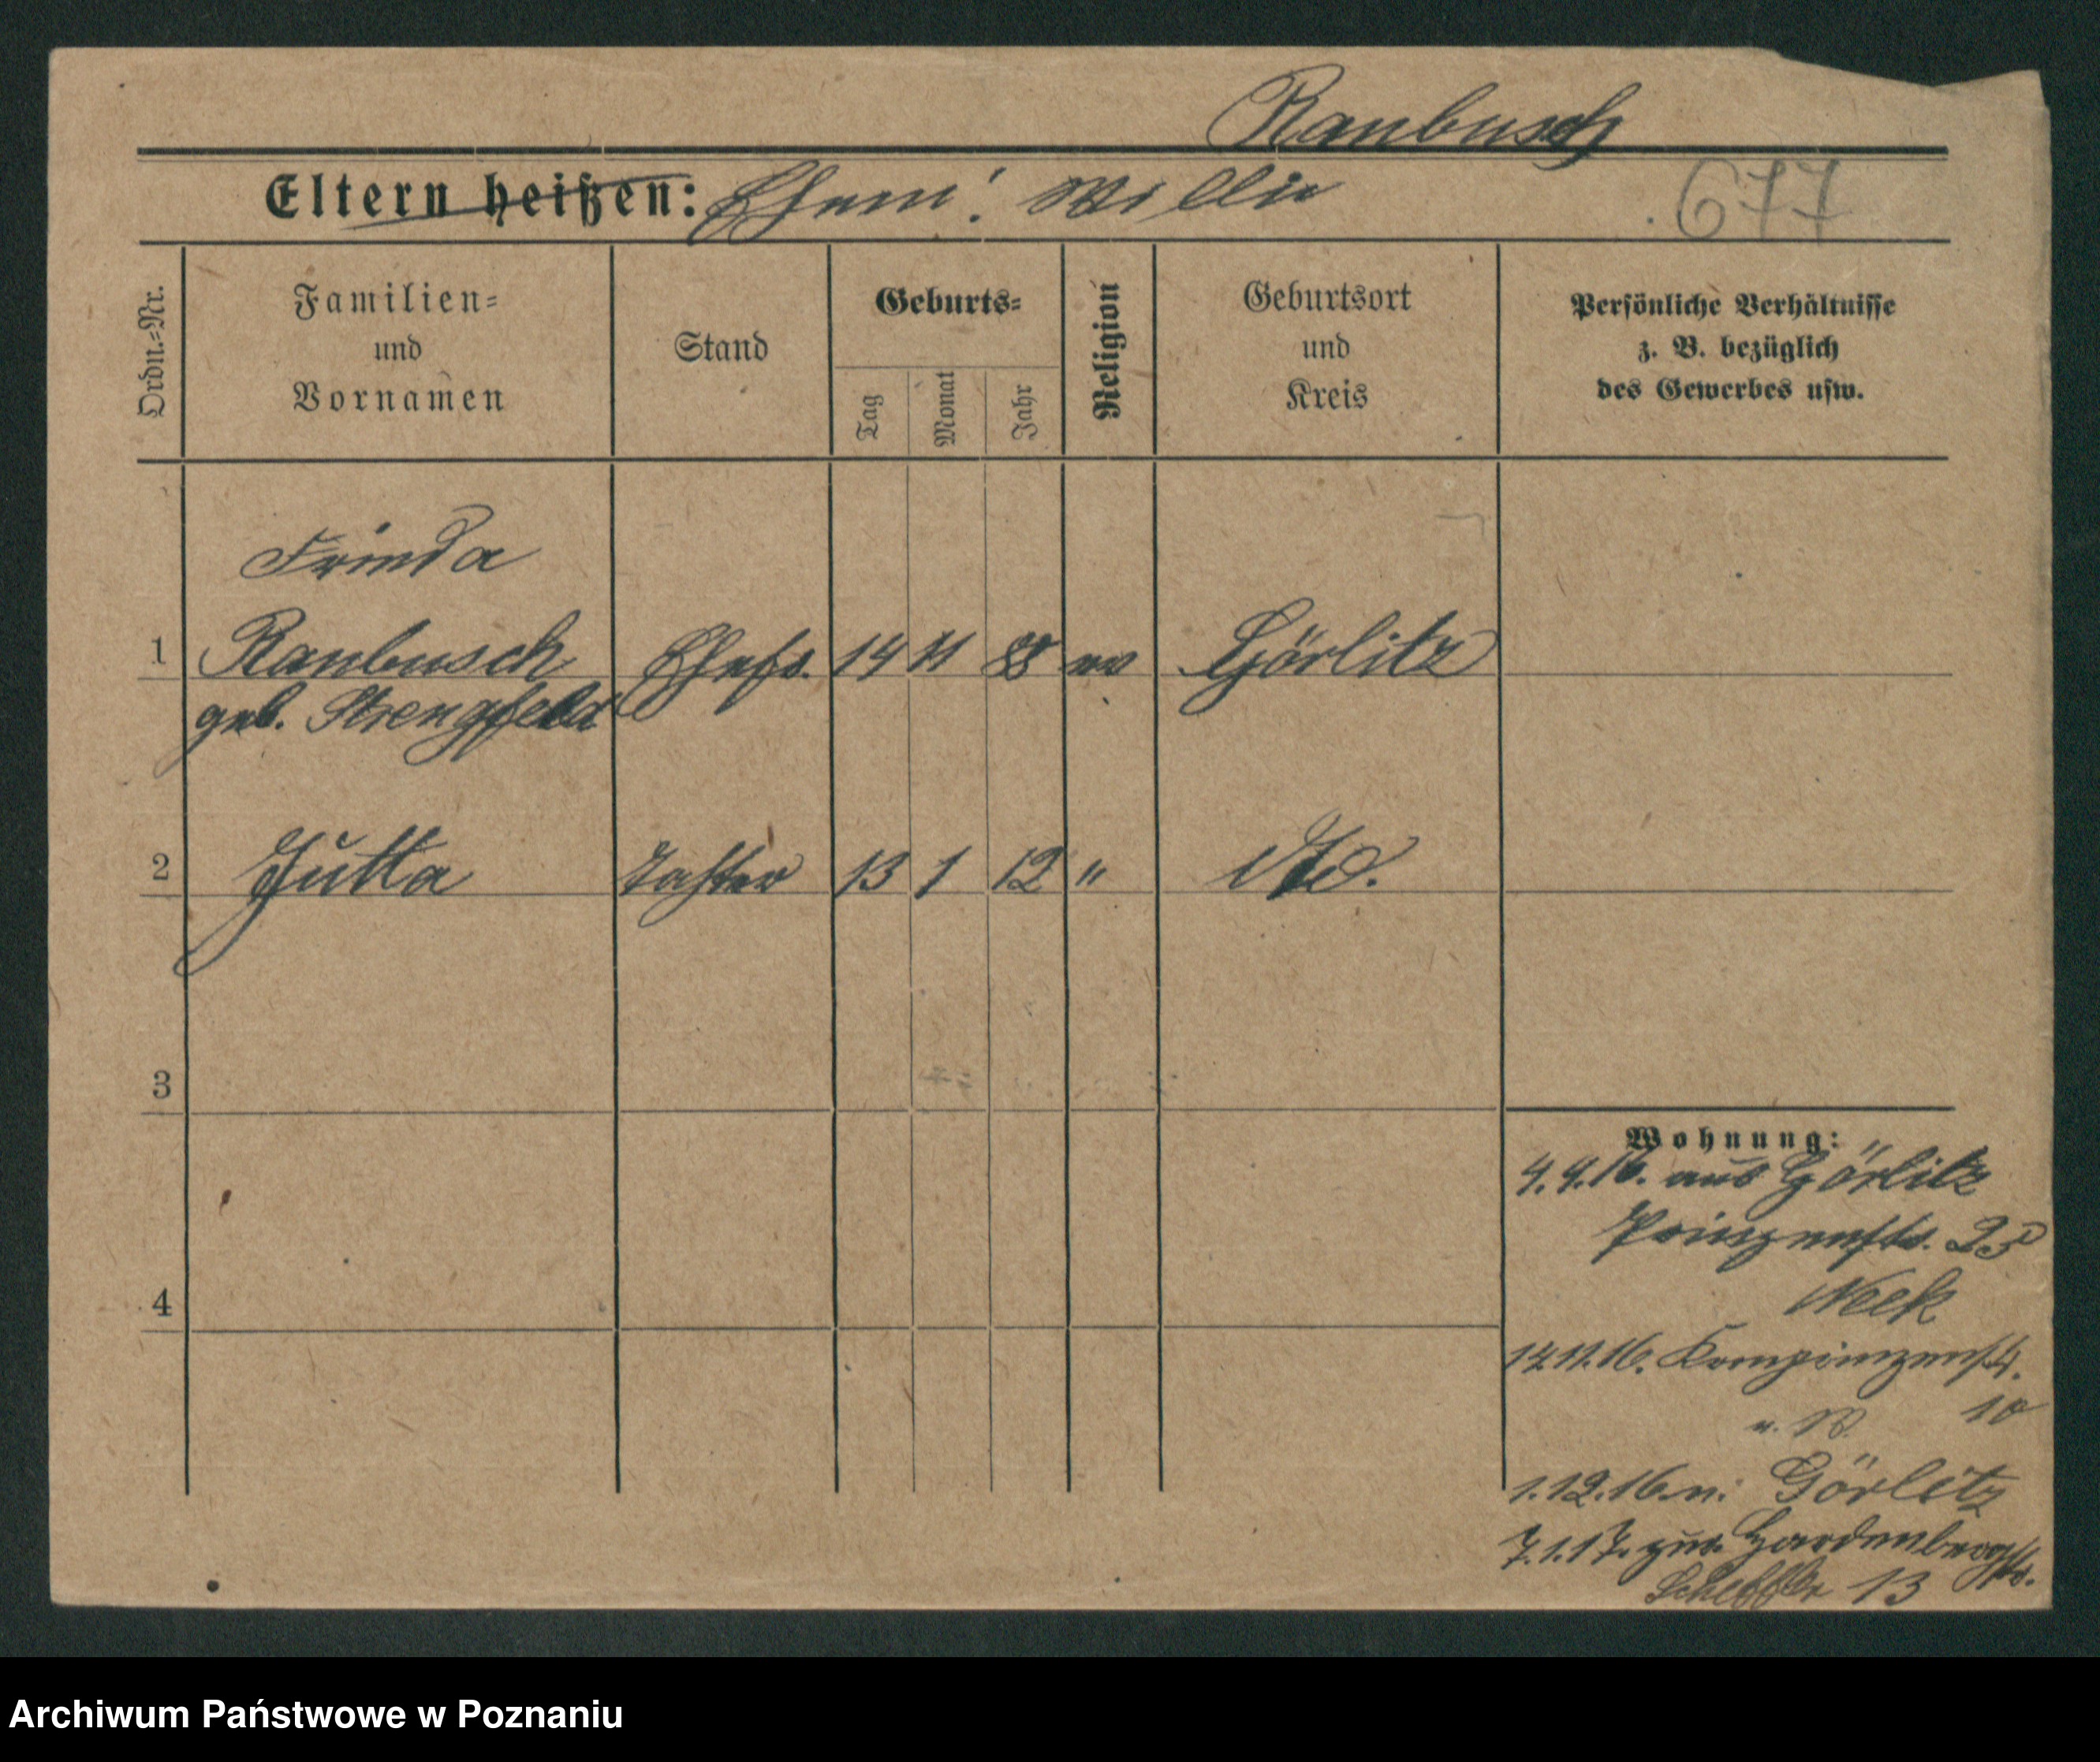 Raubusch
Eltern heißen: Ehem: Willi 677
Ordn.=Nr.
Familien=
und
Vornamen
Stand
Geburts=
Tag
Monat
Jahr
Religion
Geburtsort
und
Kreis
Persönliche Verhältnisse
z. B. bezüglich
des Gewerbes usw.
Frieda
1 Raubusch Ehefr. 14 11 88 ev Görlitz
geb. Strengfeld
2 Jutta Tochter 13 1 12 "
3
4
Wohnung:
4.9.16. aus Görlitz
Prinzenstr. 25
14.11.16. Kronprinzenstr.
10
1.12.16. n. Görlitz
7.1.17. zur. Hardenbergstr.
Scheffler 13
Archiwum Państwowe w Poznaniu